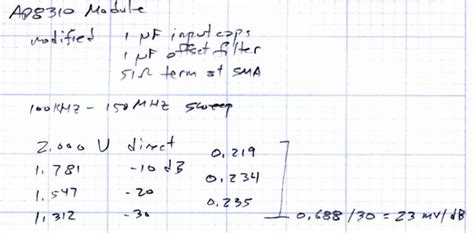 AD8310 Module
modified 1 μF input caps
1 μF offset filter
51Ω term at SMA
100KHz - 150MHz sweep
2.000 V direct
0.219
1.781 -10 dB
0.234
1.547 -20
0.235
1.312 -30
0.688/30 = 23 mV/dB